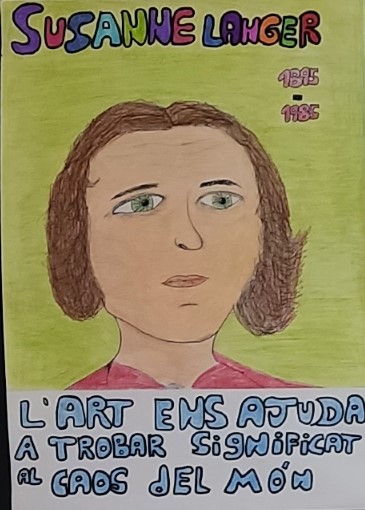 SUSANNE LANGER
1895
-
1985
L'ART ENS AJUDA
A TROBAR SIGNIFICAT
AL CAOS DEL MÓN